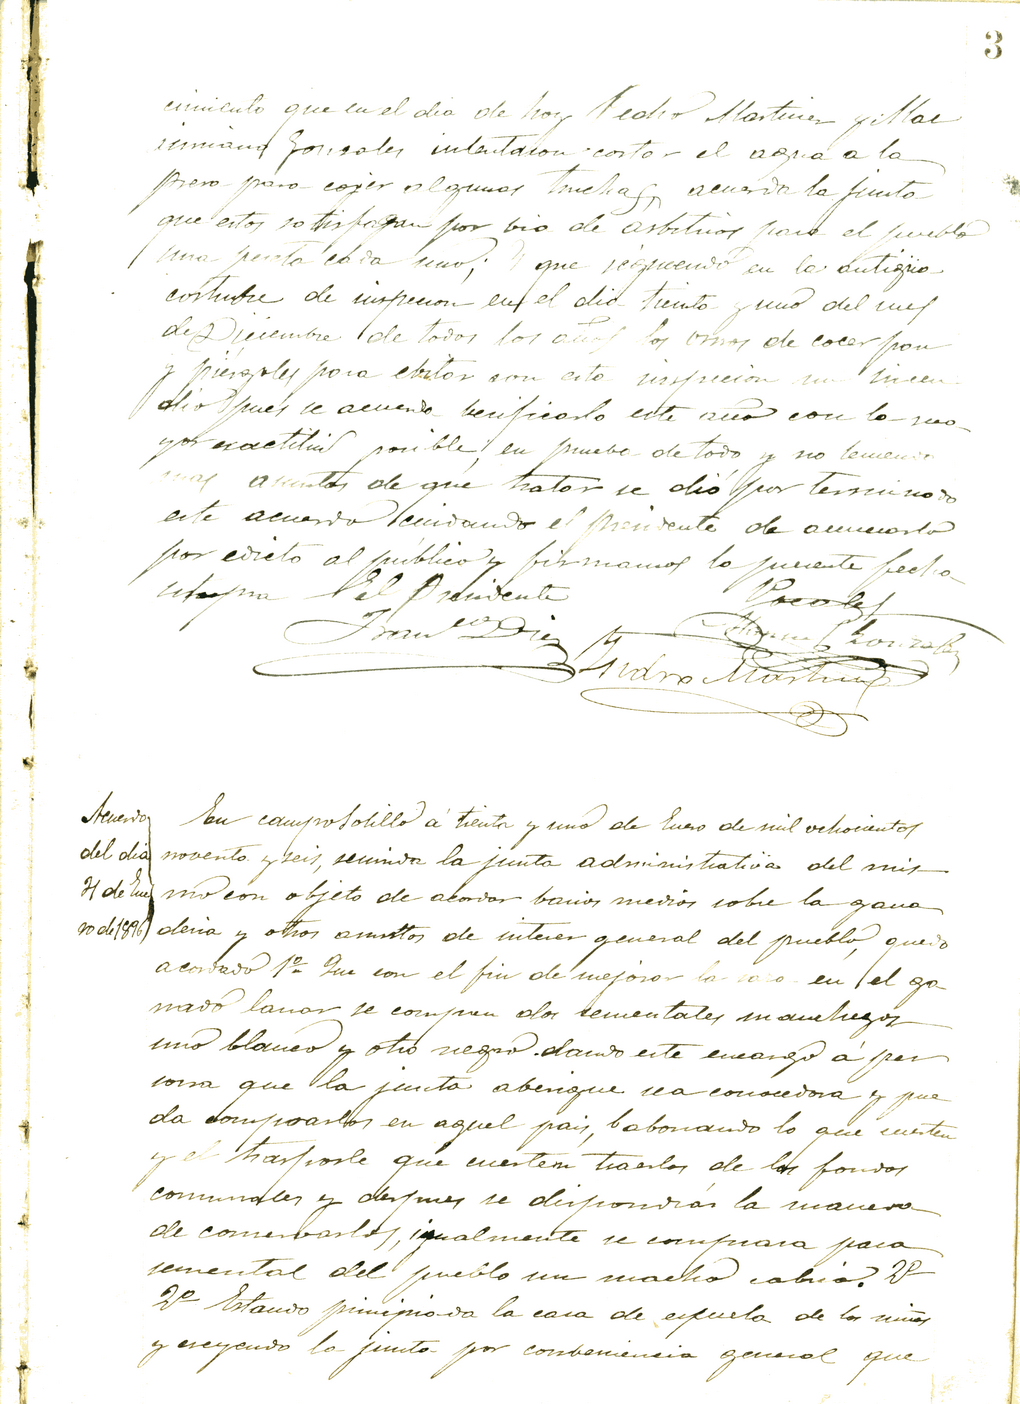 3
cimiento que en el dia de hoy Pedro Martinez y Mac
simiano Gonzales intentaron cortar el agua a la
presa para cojer algunas truchas, acuerda la junta
que estos satisfagan por via de arbitrios para el pueblo
una peseta cada uno; y que siguiendo en la antigua
costunbre de inspecion en el dia treinta y uno del mes
de Diciembre de todos los años los ornos de cocer pan
y para ebitar con esta inspecion un incen
dio pues se acuerda berificarlo este año con la ma-
yor exactitud posible, en prueba de todo y no teniendo
mas asuntos de que tratar se dió por terminado
este acuerdo cuidando el presidente de anunciarlo
por edicto al público y firmamos la presente fecha
utsupra El Presidente Vocales
Franco Diez Gonzalez
Isidro Martinez
Acuerdo
del dia
31 de Ene
ro de 1896
En camposolillo á treinta y uno de Enero de mil ochocientos
novento y seis, reunida la junta administratiba del mis
mo con objeto de acordar barios medios sobre la gana
deria y otros asuntos de interer general del pueblo, quedo
acordado 1º Que con el fin de mejorar la raza en el ga
nado lanar se compren dos sementales manchegos
uno blanco y otro negro dando este encargo á per
sona que la junta aberigue sea conocedora y pue
da comprarlos en aquel pais, babonando lo que cuesten
y el trasporte que cuesten traerlos de los fondos
comunales y despues se dispondrá la manera
de conserbarlos, igualmente se comprara para
semental del pueblo un macho cabrio. 2º
2º Estando principiada la casa de escuela de los niños
y creyendo la junta por conbeniencia general que